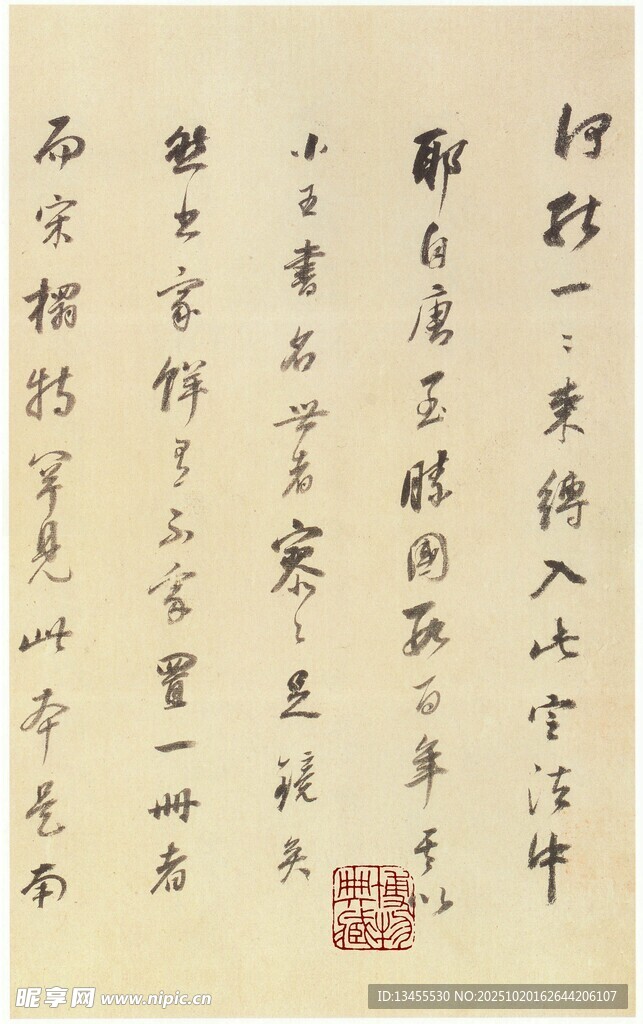 何能一〻束縛入此定法中
耶自唐至勝國數百年其以
小王書名世者寥〻足鏡矣
然書家鮮有不家置一冊者
而宋榻特罕見此本是南
博物
典藏
昵享网 www.nipic.cn
ID:13455530 NO:20251020162644206107